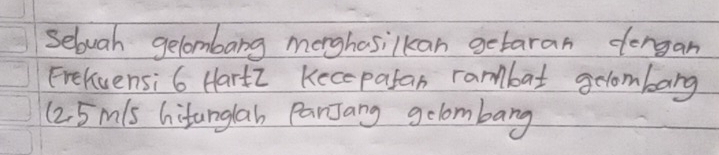 Sebuah gelombang menghasilkan getaran dengan
Frekuensi 6 Hartz Kecepatan rambat gelombang
12,5 m/s hitunglah Panjang gelombang